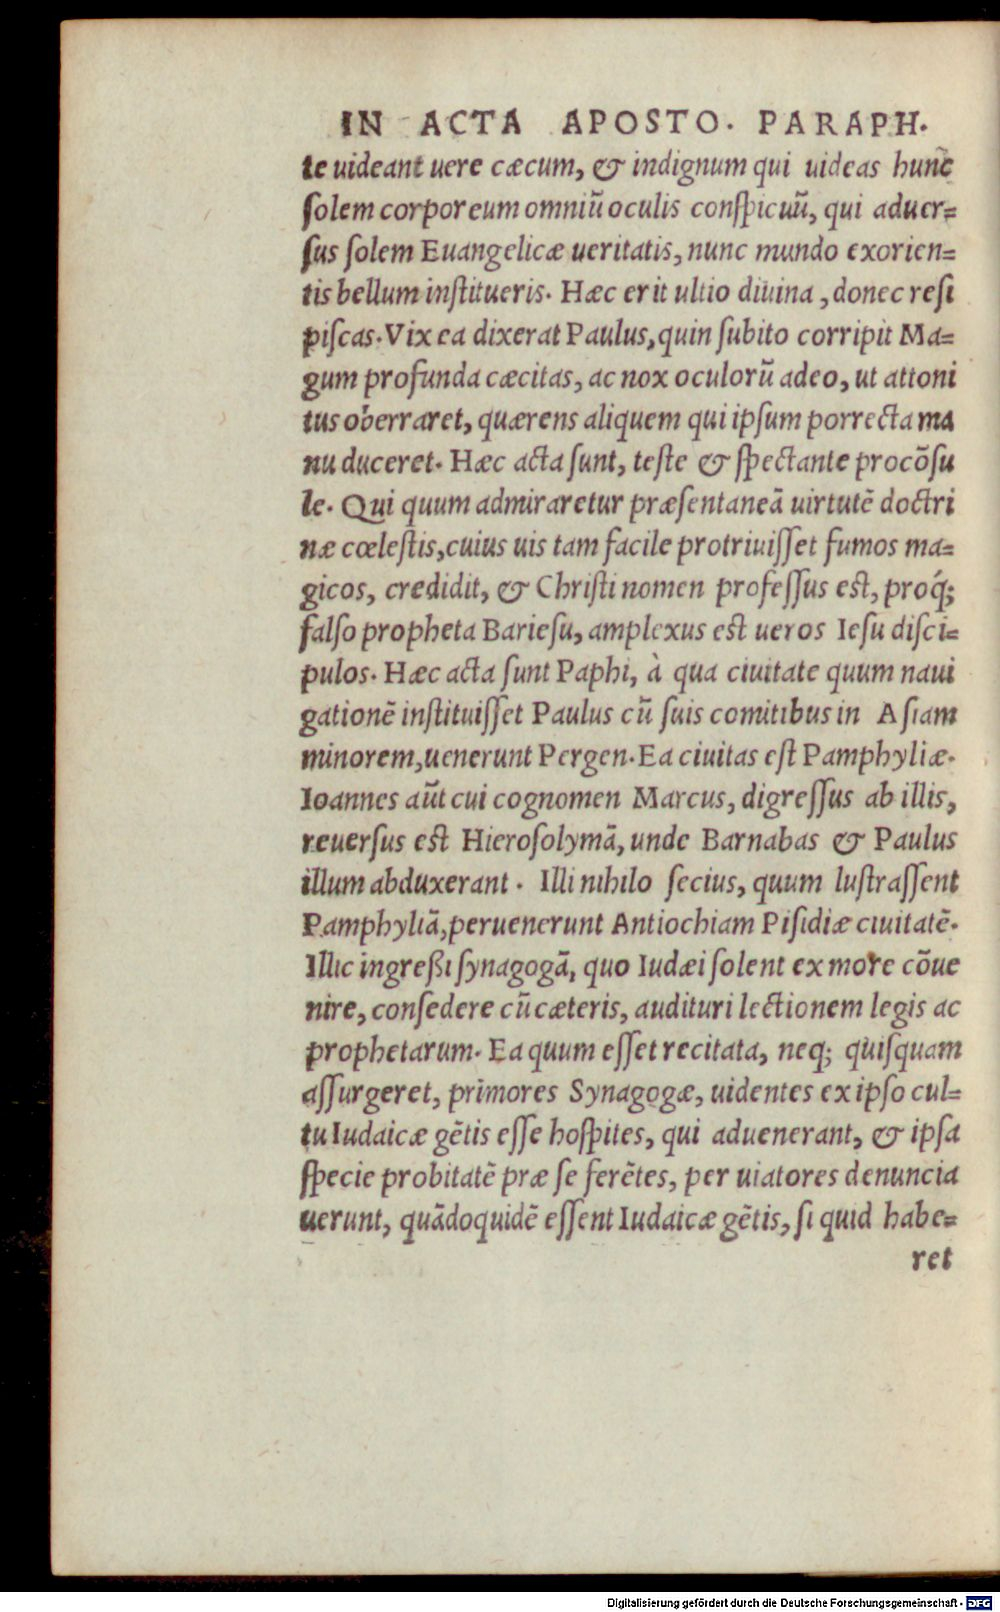 IN ACTA APOSTO. PARAPH.
te uideant uere cæcum, & indignum qui uideas hunc
ſolem corporeum omniũ oculis conſpicuũ, qui aduer=
ſus ſolem Euangelicæ ueritatis, nunc mundo exorien=
tis bellum inſtitueris. Hæc erit ultio diuina, donec reſi
piſcas. Vix ea dixerat Paulus, quin ſubito corripit Ma=
gum profunda cæcitas, ac nox oculorũ adeo, ut attoni
tus oberraret, quærens aliquem qui ipſum porrecta ma
nu duceret. Hæc acta ſunt, teſte & ſpectante procõſu
le. Qui quum admiraretur præſentaneã uirtutẽ doctri
næ cœleſtis, cuius uis tam facile protriuiſſet fumos ma=
gicos, credidit, & Chriſti nomen profeſſus eſt, proq́;
falſo propheta Barieſu, amplexus eſt ueros Ieſu diſci=
pulos. Hæc acta ſunt Paphi, à qua ciuitate quum naui
gationẽ inſtituiſſet Paulus cũ ſuis comitibus in Aſiam
minorem, uenerunt Pergen. Ea ciuitas eſt Pamphyliæ.
Ioannes aũt cui cognomen Marcus, digreſſus ab illis,
reuerſus eſt Hieroſolymã, unde Barnabas & Paulus
illum abduxerant. Illi nihilo ſecius, quum luſtraſſent
Pamphyliã, peruenerunt Antiochiam Piſidiæ ciuitatẽ.
Illic ingreßi ſynagogã, quo Iudæi ſolent ex more cõue
nire, conſedere cũ cæteris, audituri lectionem legis ac
prophetarum. Ea quum eſſet recitata, neq; quiſquam
aſſurgeret, primores Synagogæ, uidentes ex ipſo cul=
tu Iudaicæ gẽtis eſſe hoſpites, qui aduenerant, & ipſa
ſpecie probitatẽ præ ſe ferẽtes, per uiatores denuncia
uerunt, quãdoquidẽ eſſent Iudaicæ gẽtis, ſi quid habe=
ret
Digitalisierung gefördert durch die Deutsche Forschungsgemeinschaft - DFG